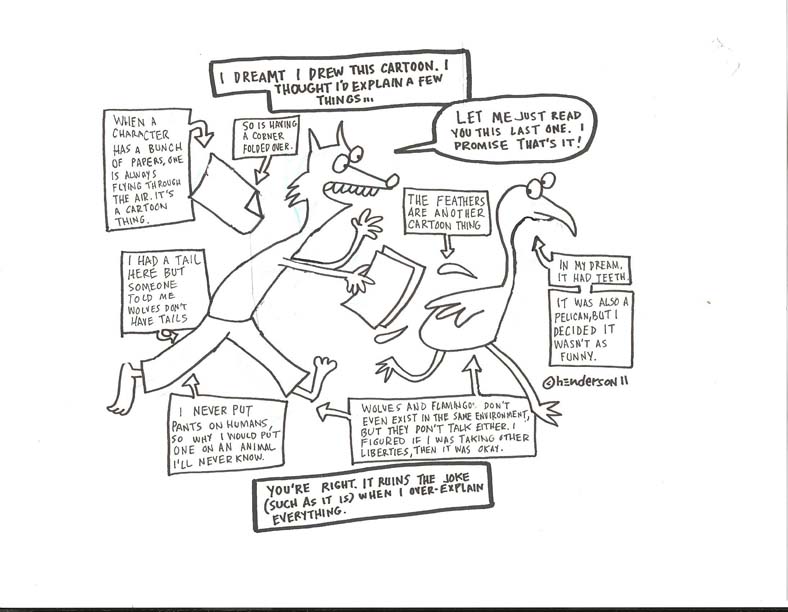 I DREAMT I DREW THIS CARTOON. I
THOUGHT I'D EXPLAIN A FEW
THINGS...
LET ME JUST READ
YOU THIS LAST ONE. I
PROMISE THAT'S IT!
WHEN A
CHARACTER
HAS A BUNCH
OF PAPERS, ONE
IS ALWAYS
FLYING THROUGH
THE AIR. IT'S
A CARTOON
THING.
SO IS HAVING
A CORNER
FOLDED OVER.
THE FEATHERS
ARE ANOTHER
CARTOON THING
I HAD A TAIL
HERE BUT
SOMEONE
TOLD ME
WOLVES DON'T
HAVE TAILS
IN MY DREAM,
IT HAD TEETH.
IT WAS ALSO A
PELICAN, BUT I
DECIDED IT
WASN'T AS
FUNNY.
©HENDERSON 11
I NEVER PUT
PANTS ON HUMANS,
SO WHY I WOULD PUT
ONE ON AN ANIMAL
I'LL NEVER KNOW.
WOLVES AND FLAMINGOS DON'T
EVEN EXIST IN THE SAME ENVIRONMENT,
BUT THEY DON'T TALK EITHER. I
FIGURED IF I WAS TAKING OTHER
LIBERTIES, THEN IT WAS OKAY.
YOU'RE RIGHT. IT RUINS THE JOKE
(SUCH AS IT IS) WHEN I OVER-EXPLAIN
EVERYTHING.